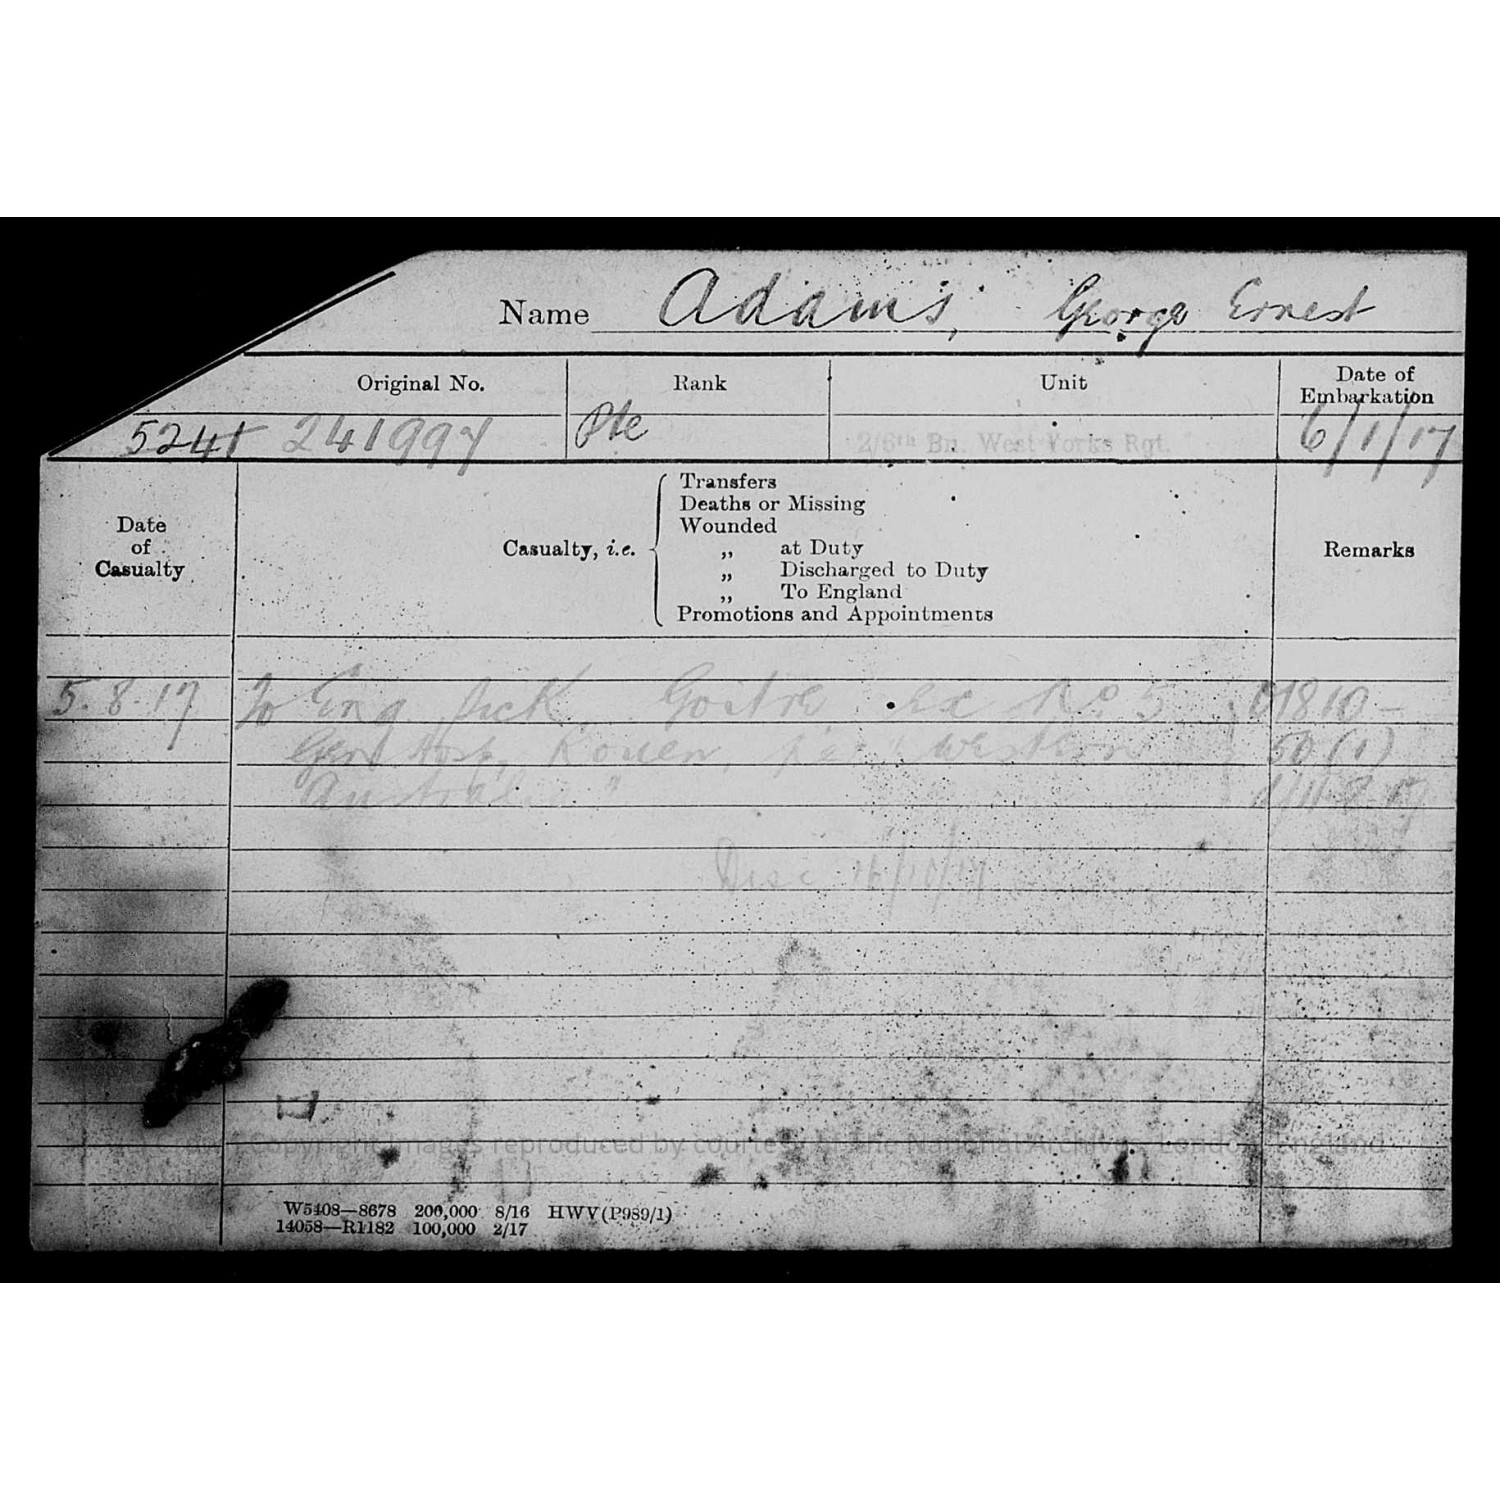 Name Adams, George Ernest
Original No. Rank Unit Date of Embarkation
5241 241997 Pte 2/6th Bn. West Yorks Rgt. 6/1/17
Date of Casualty
Casualty, i.e.
Transfers
Deaths or Missing
Wounded
„ at Duty
„ Discharged to Duty
„ To England
Promotions and Appointments
Remarks
5.8.17 To Eng. Sick, Goitre ex No 5 01810-
Genl Hosp, Rouen, per "Western 50(1)
Australia"
Disc 16/10/17
Crown Copyright Images reproduced by courtesy of The National Archives, London, England
W5408—8678 200,000 8/16 HWV(P989/1)
14058—R1182 100,000 2/17